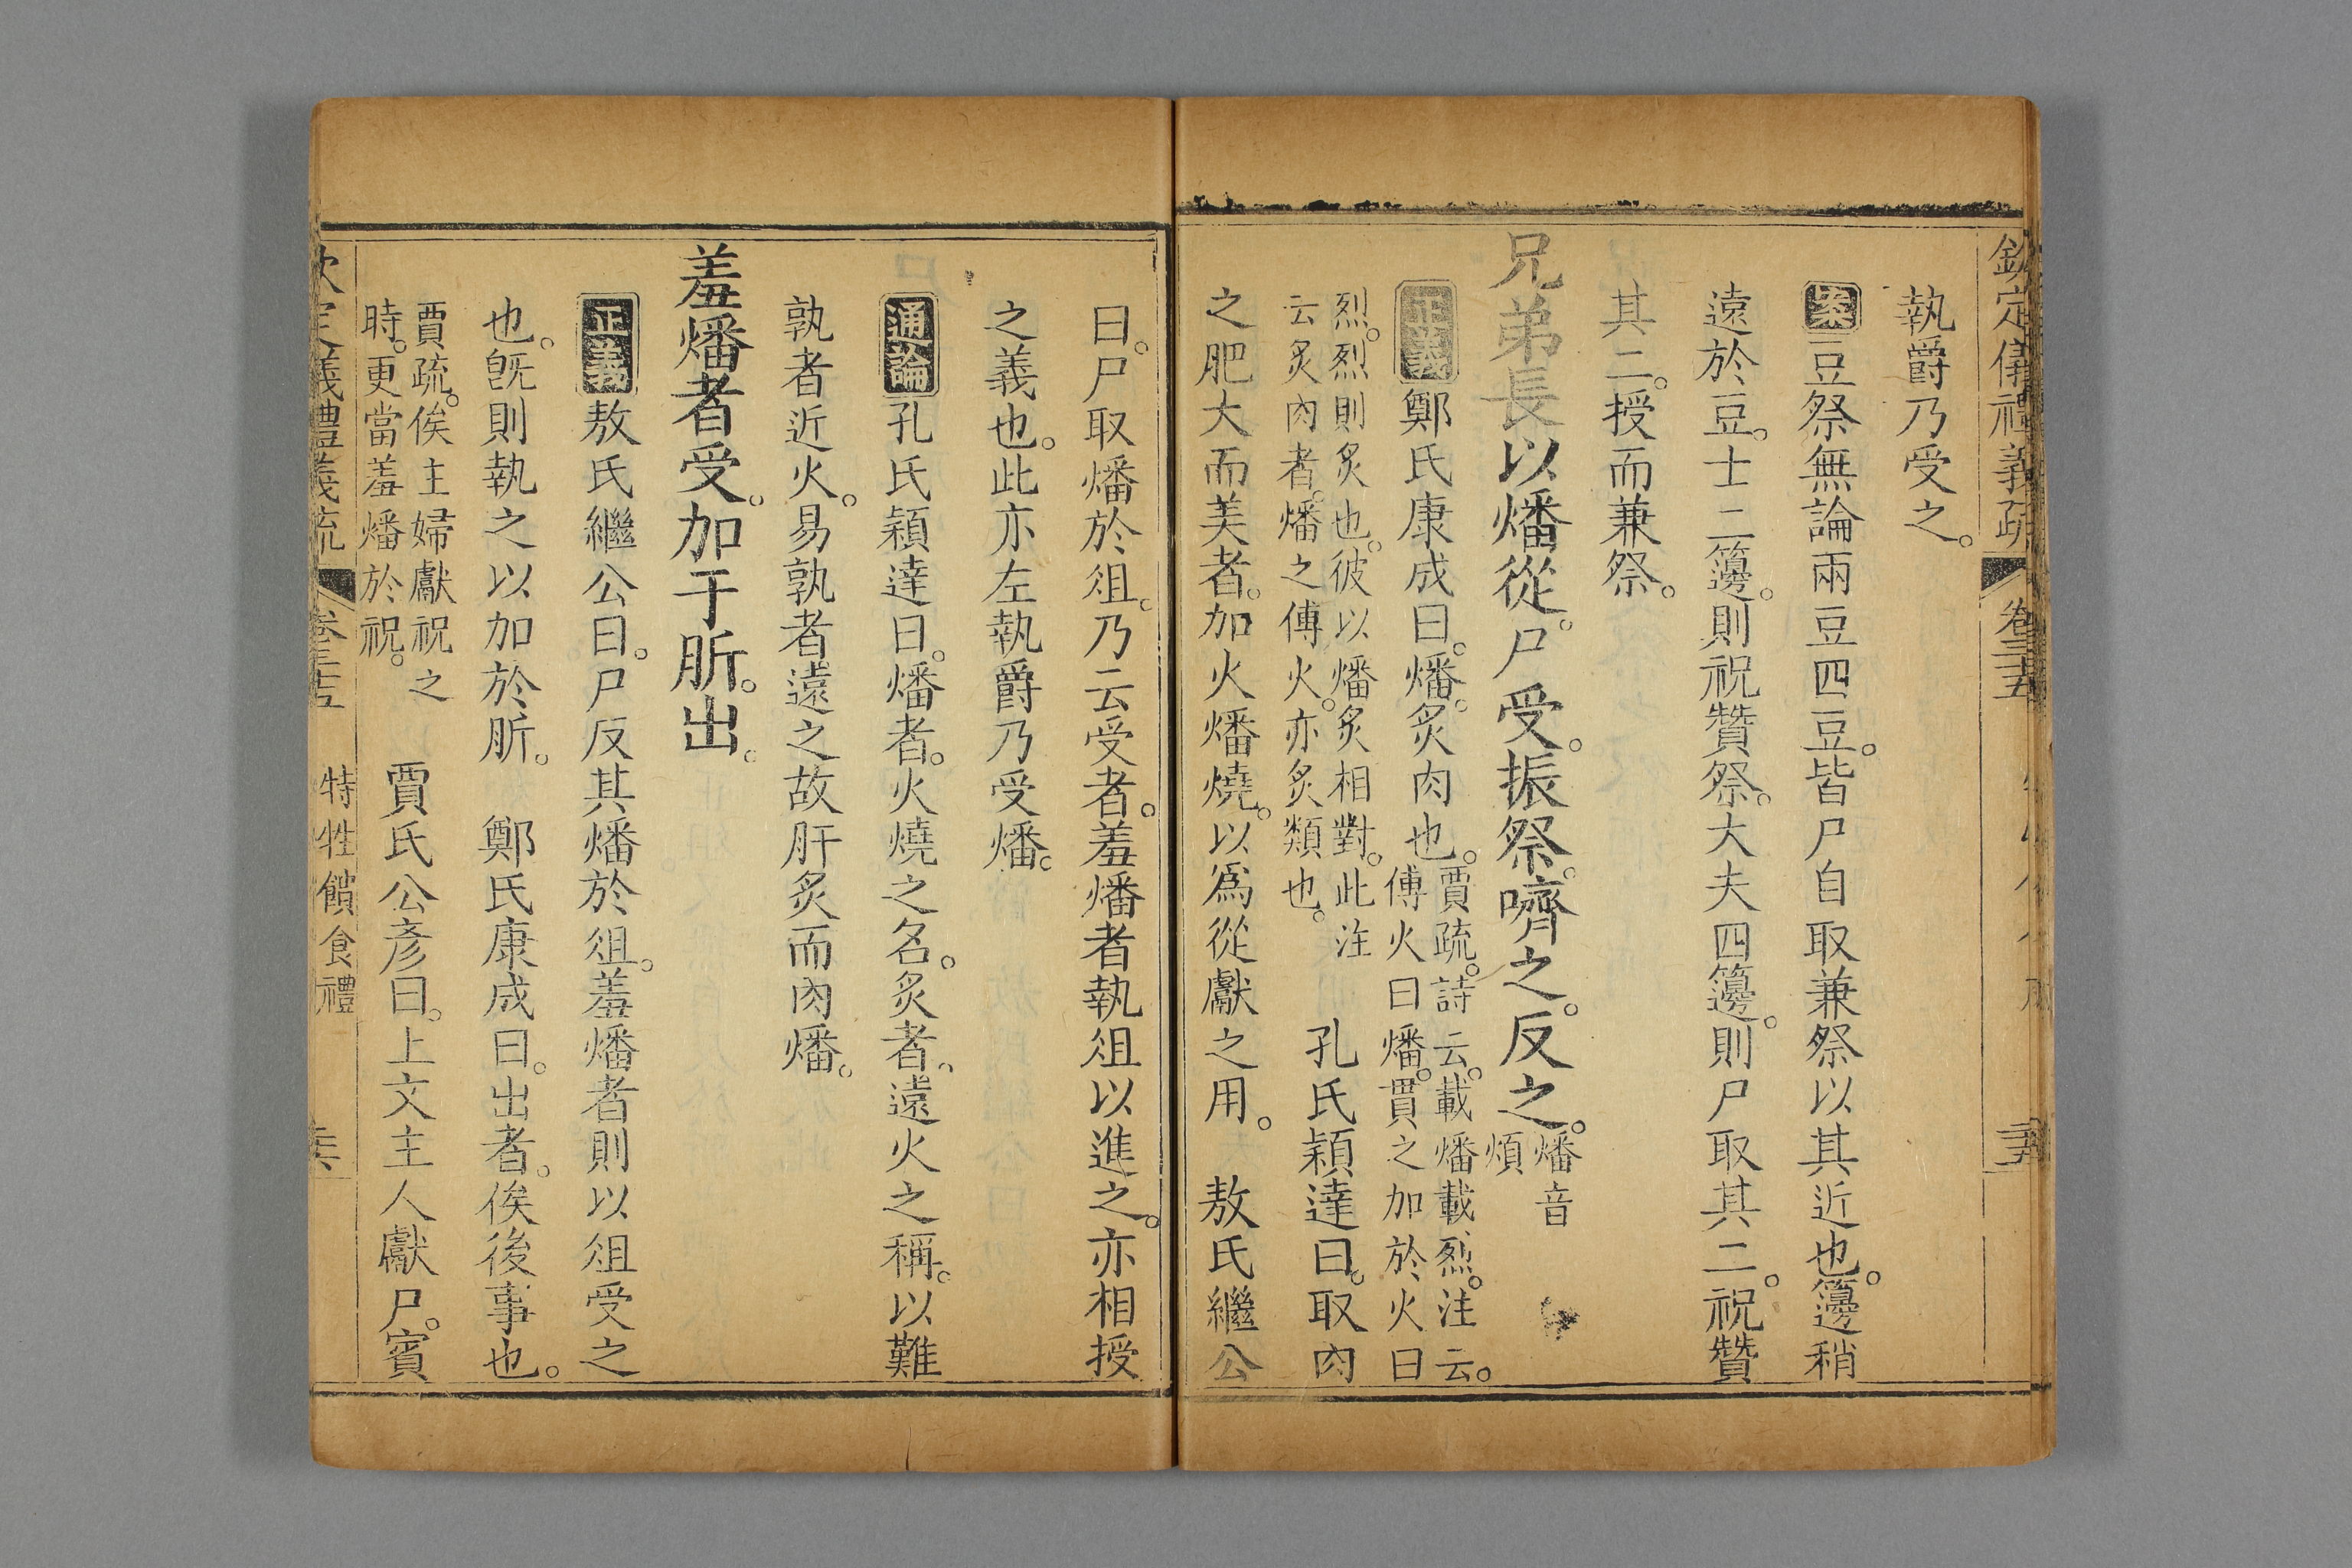 欽定儀禮義疏 卷三十五
執爵乃受之。
案豆祭無論兩豆四豆。皆尸自取兼祭以其近也。籩稍
遠於豆。士二籩。則祝贊祭。大夫四籩。則尸取其二。祝贊
其二。授而兼祭。
兄弟長以燔從。尸受。振祭。嚌之。反之。燔音
煩
正義鄭氏康成曰。燔。炙肉也。賈疏。詩云。載燔載烈。注云。
傅火曰燔。貫之加於火曰
烈。烈則炙也。彼以燔炙相對。此注
云炙肉者。燔之傅火。亦炙類也。
孔氏穎達曰。取肉
之肥大而美者。加火燔燒。以爲從獻之用。 敖氏繼公
曰。尸取燔於俎。乃云受者。羞燔者執俎以進之。亦相授
之義也。此亦左執爵乃受燔。
通論孔氏穎達曰。燔者。火燒之名。炙者、遠火之稱。以難
孰者近火。易孰者遠之故肝炙而肉燔。
羞燔者受。加于肵。出。
正義敖氏繼公曰。尸反其燔於俎。羞燔者則以俎受之
也。旣則執之以加於肵。 鄭氏康成曰。出者。俟後事也。
賈疏。俟主婦獻祝之
時。更當羞燔於祝。
賈氏公彥曰。上文主人獻尸。賓
義禮義疏 特牲饋食禮